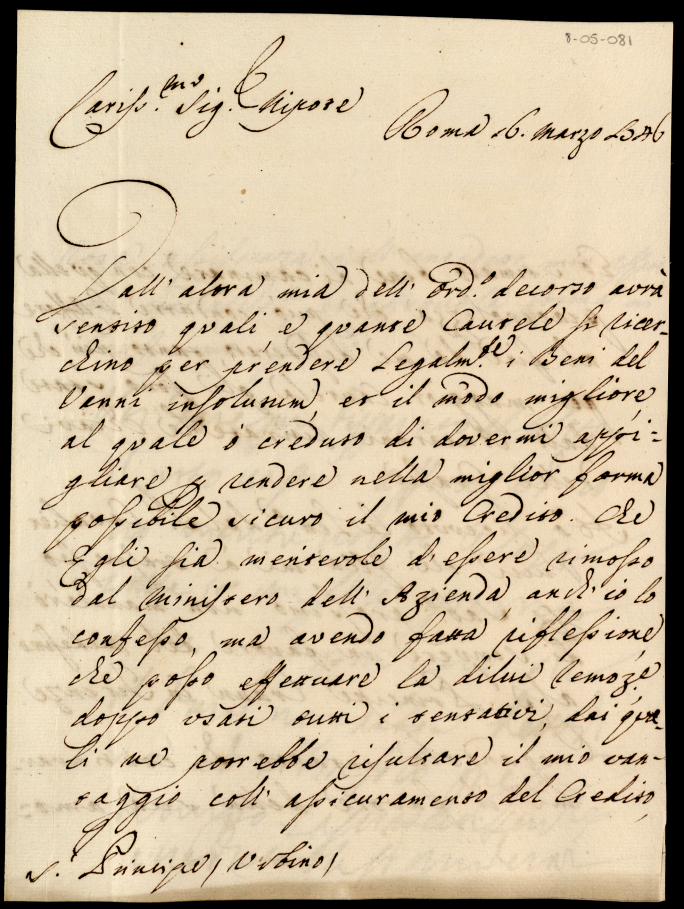 8-05-081
Cariss.mo Sig.r Nipote
Roma 16. Marzo
Dall' altra mia dell' ord.o decorso avrà
sentito quali, e quante Cautele si ricer-
chino per prendere Legalm.te i Beni del
Vanni insolutum, et il modo migliore,
al quale ò creduto di dovermi appi-
gliare p rendere nella miglior forma
possibile sicuro il mio Credito. Che
Egli sia meritevole d'essere rimosso
dal Ministero dell' Azienda anch' io lo
confesso, ma avendo fatta riflessione,
che posso effettuare la dilui remoz.e
doppo usati tutti i tentativi, dai qua-
li ne potrebbe risultare il mio van-
taggio coll' assicuramento del Credito,
S.r Principe, Urbino,